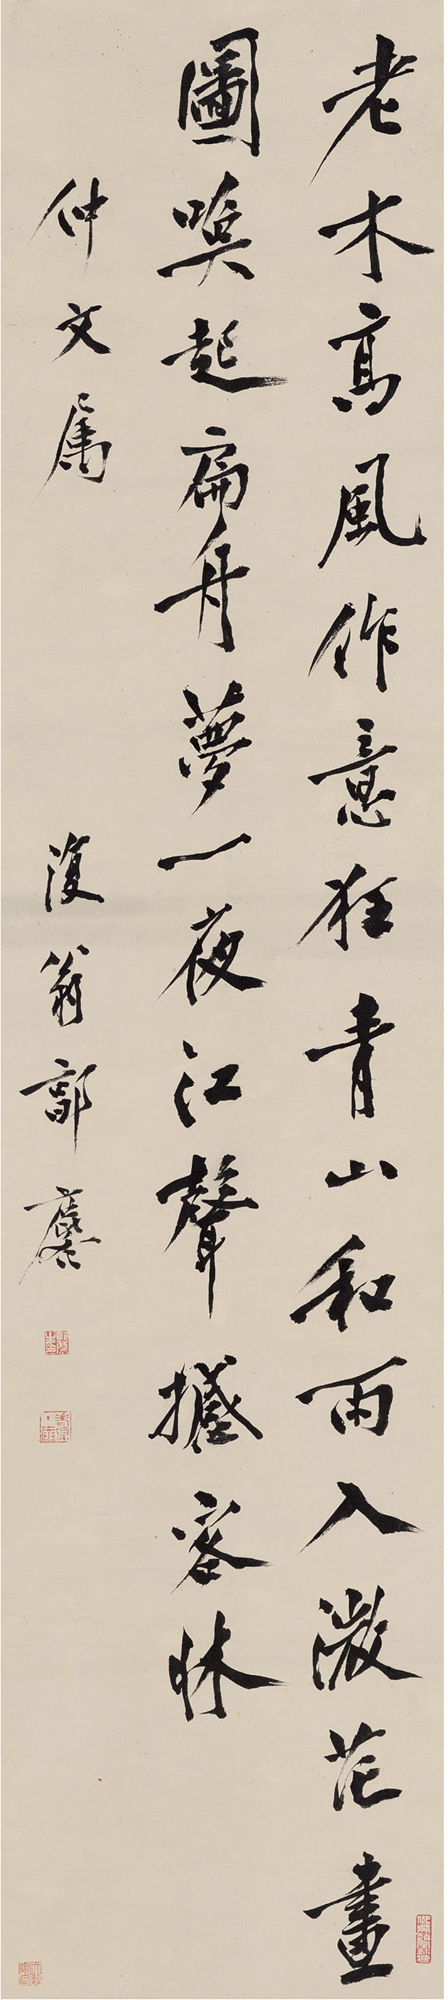 老木高風作意狂青山和雨入微茫畫
圖喚起扁舟夢一夜江聲撼客牀
仲文屬
復翁郭麐